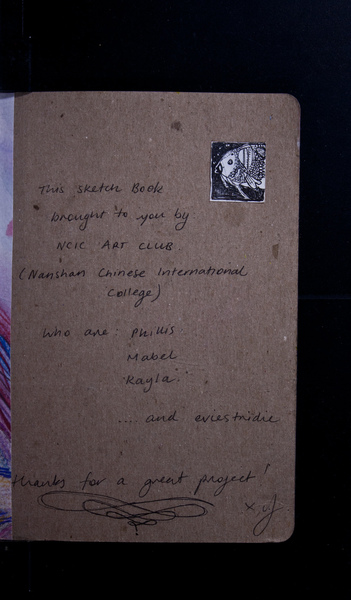 This Sketch Book
brought to you by
NCIC ART CLUB.
(Nanshan Chinese International
College)
who are: Phillis
Mabel
Kayla...
... and
thanks for a great project!